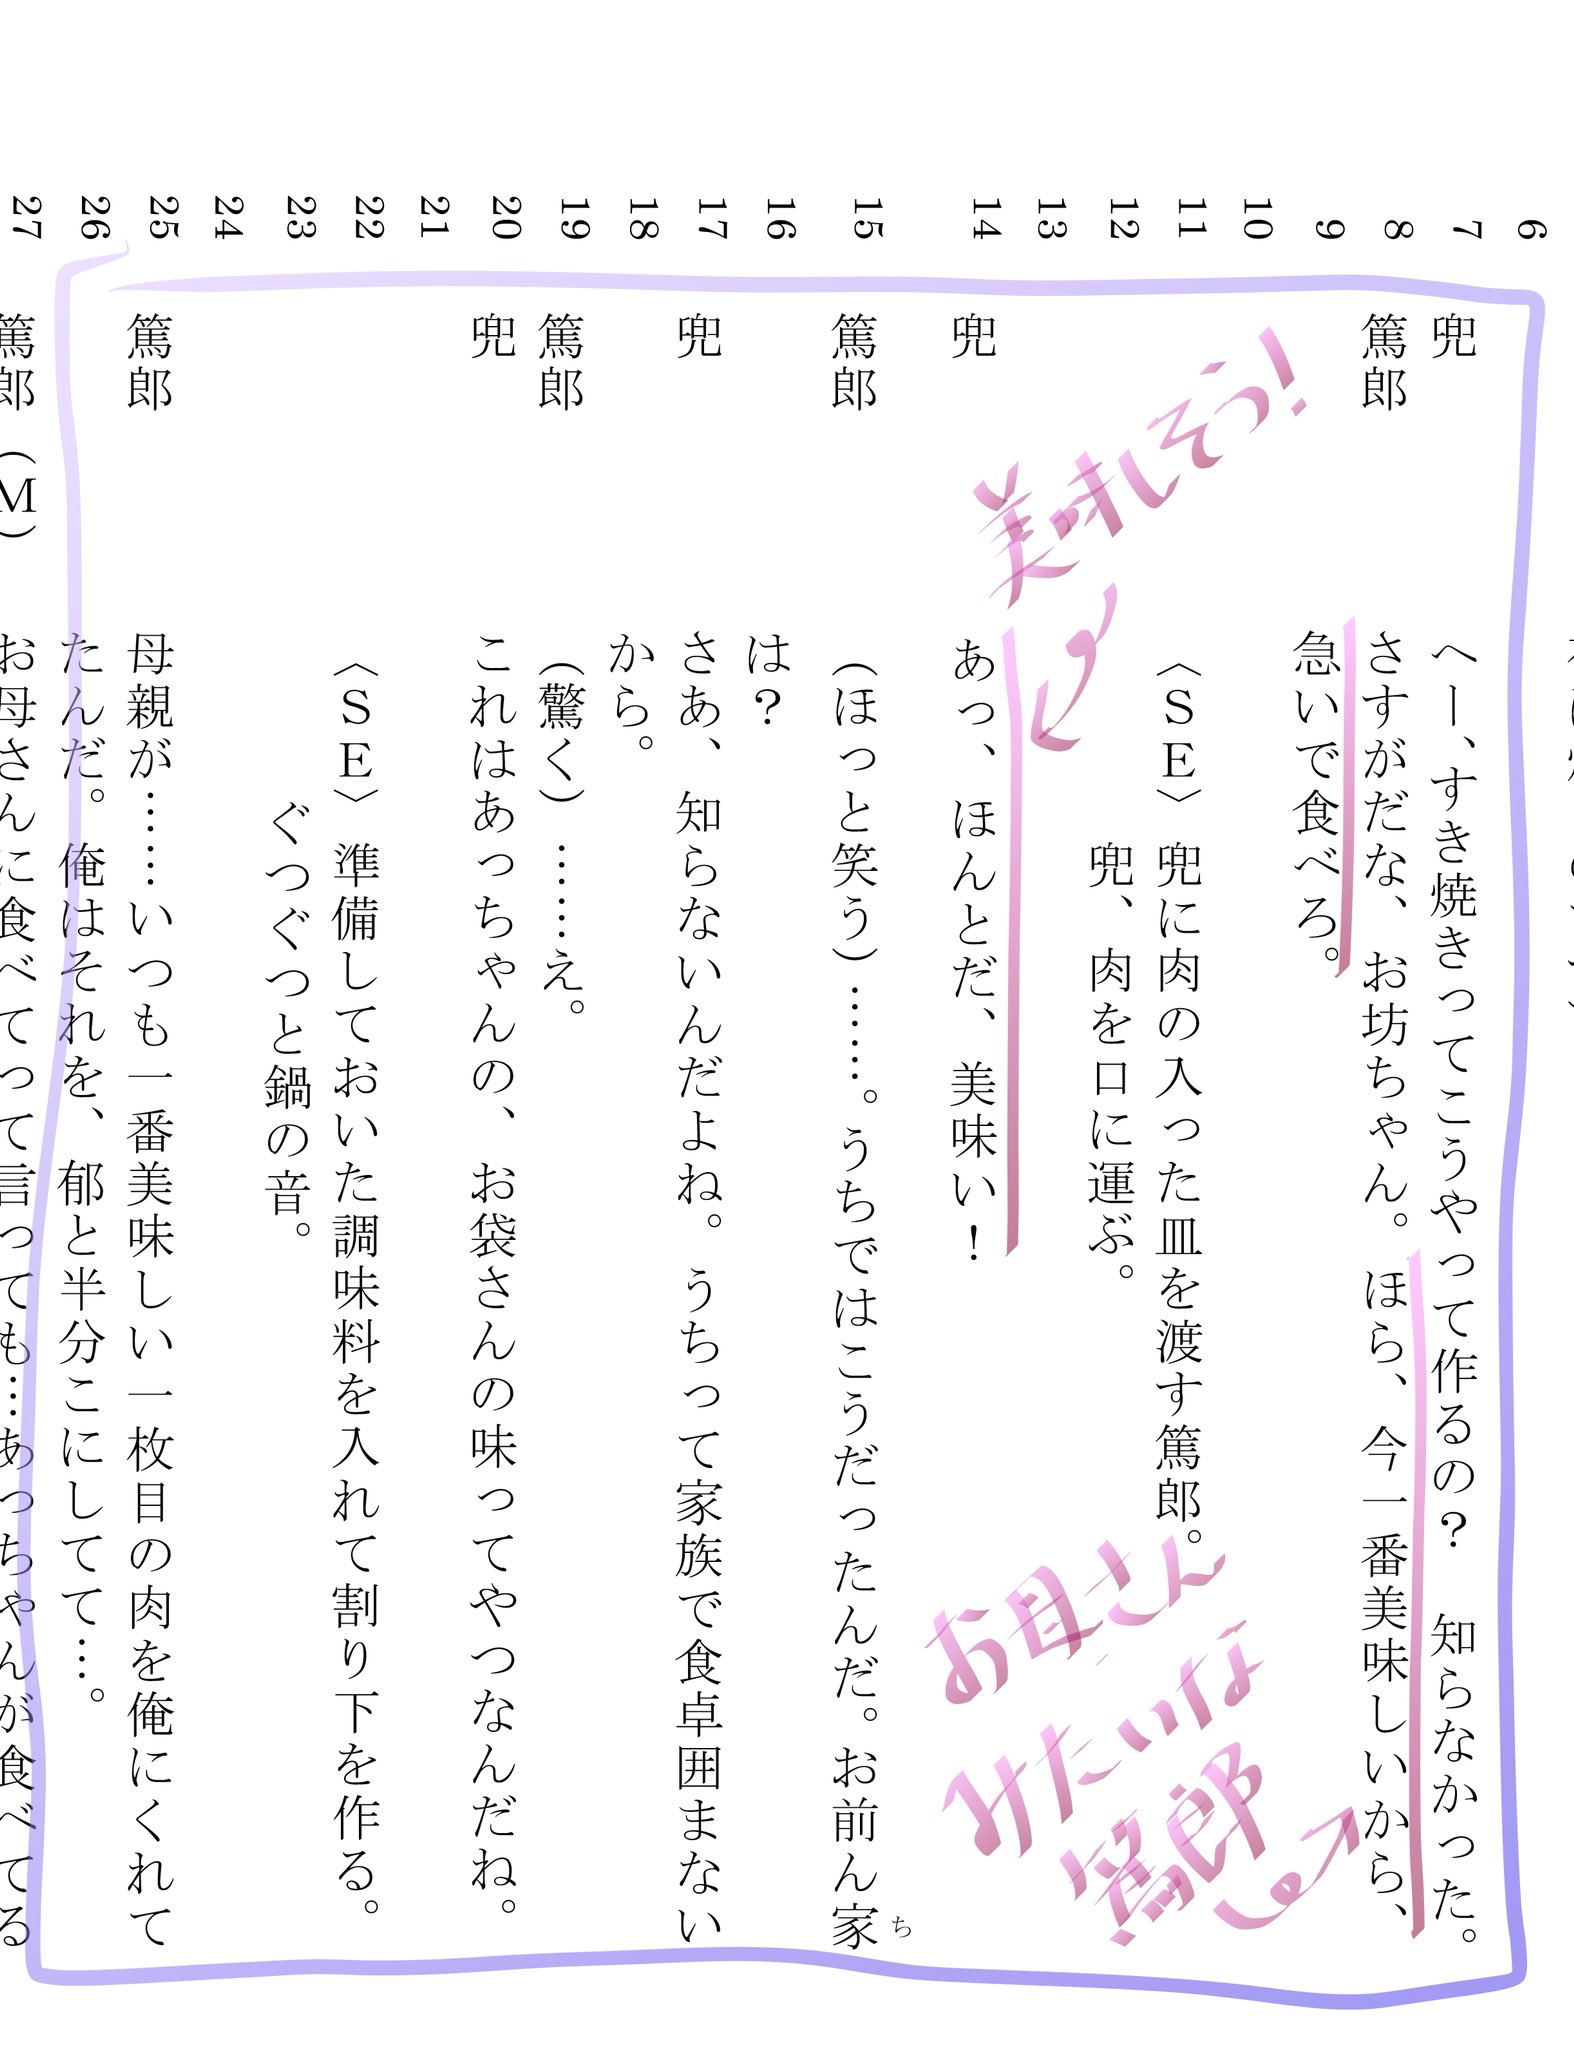 6
7 兜 へー、すき焼きってこうやって作るの？ 知らなかった。
8 篤郎 さすがだな、お坊ちゃん。ほら、今一番美味しいから、
9 急いで食べろ。
10
11 〈ＳＥ〉兜に肉の入った皿を渡す篤郎。
12 兜、肉を口に運ぶ。
13
14 兜 あっ、ほんとだ、美味い！
15 篤郎 （ほっと笑う）……。うちではこうだったんだ。お前ん家
ち
16 は？
17 兜 さあ、知らないんだよね。うちって家族で食卓囲まない
18 から。
19 篤郎 （驚く）……え。
20 兜 これはあっちゃんの、お袋さんの味ってやつなんだね。
21
22 〈ＳＥ〉準備しておいた調味料を入れて割り下を作る。
23 ぐつぐつと鍋の音。
24
25 篤郎 母親が……いつも一番美味しい一枚目の肉を俺にくれて
26 たんだ。俺はそれを、郁と半分こにしてて…。
27 篤郎（Ｍ） お母さんに食べてって言っても…あっちゃんが食べてる
美味しそう！
お母さん
みたいな
篤郎